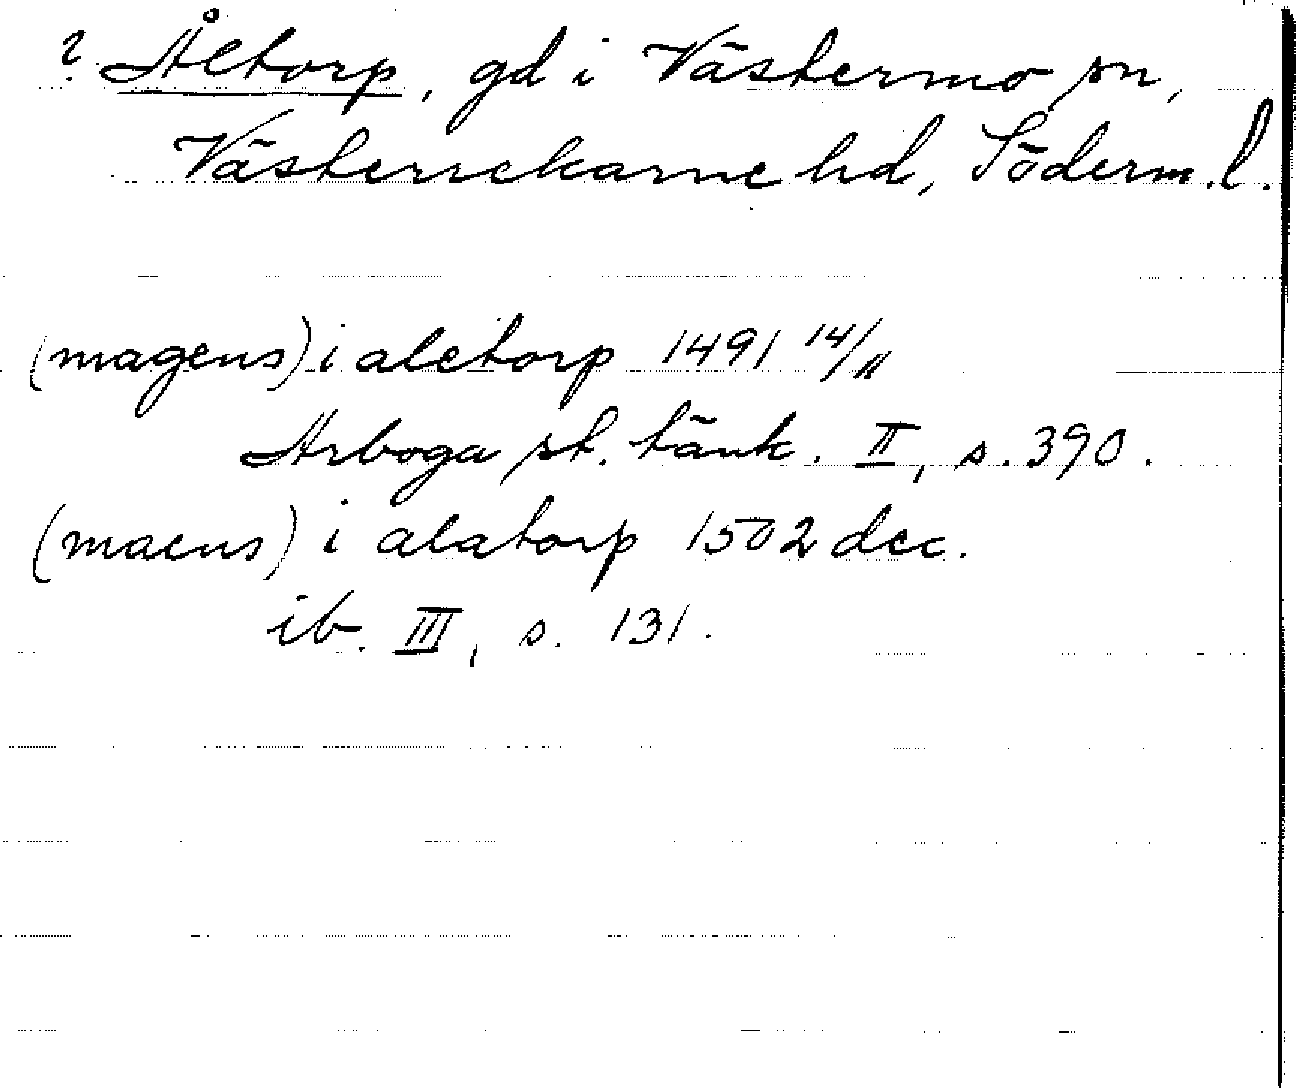 ? Åltorp, gd i Västermo sn,
Västerrekarne hd, Söderm.l.
(magens) i aletorp 1491 14/11
Arboga st. tänk. II, s. 390.
(maens) i alatorp 1502 dec.
ib. III, s. 131.